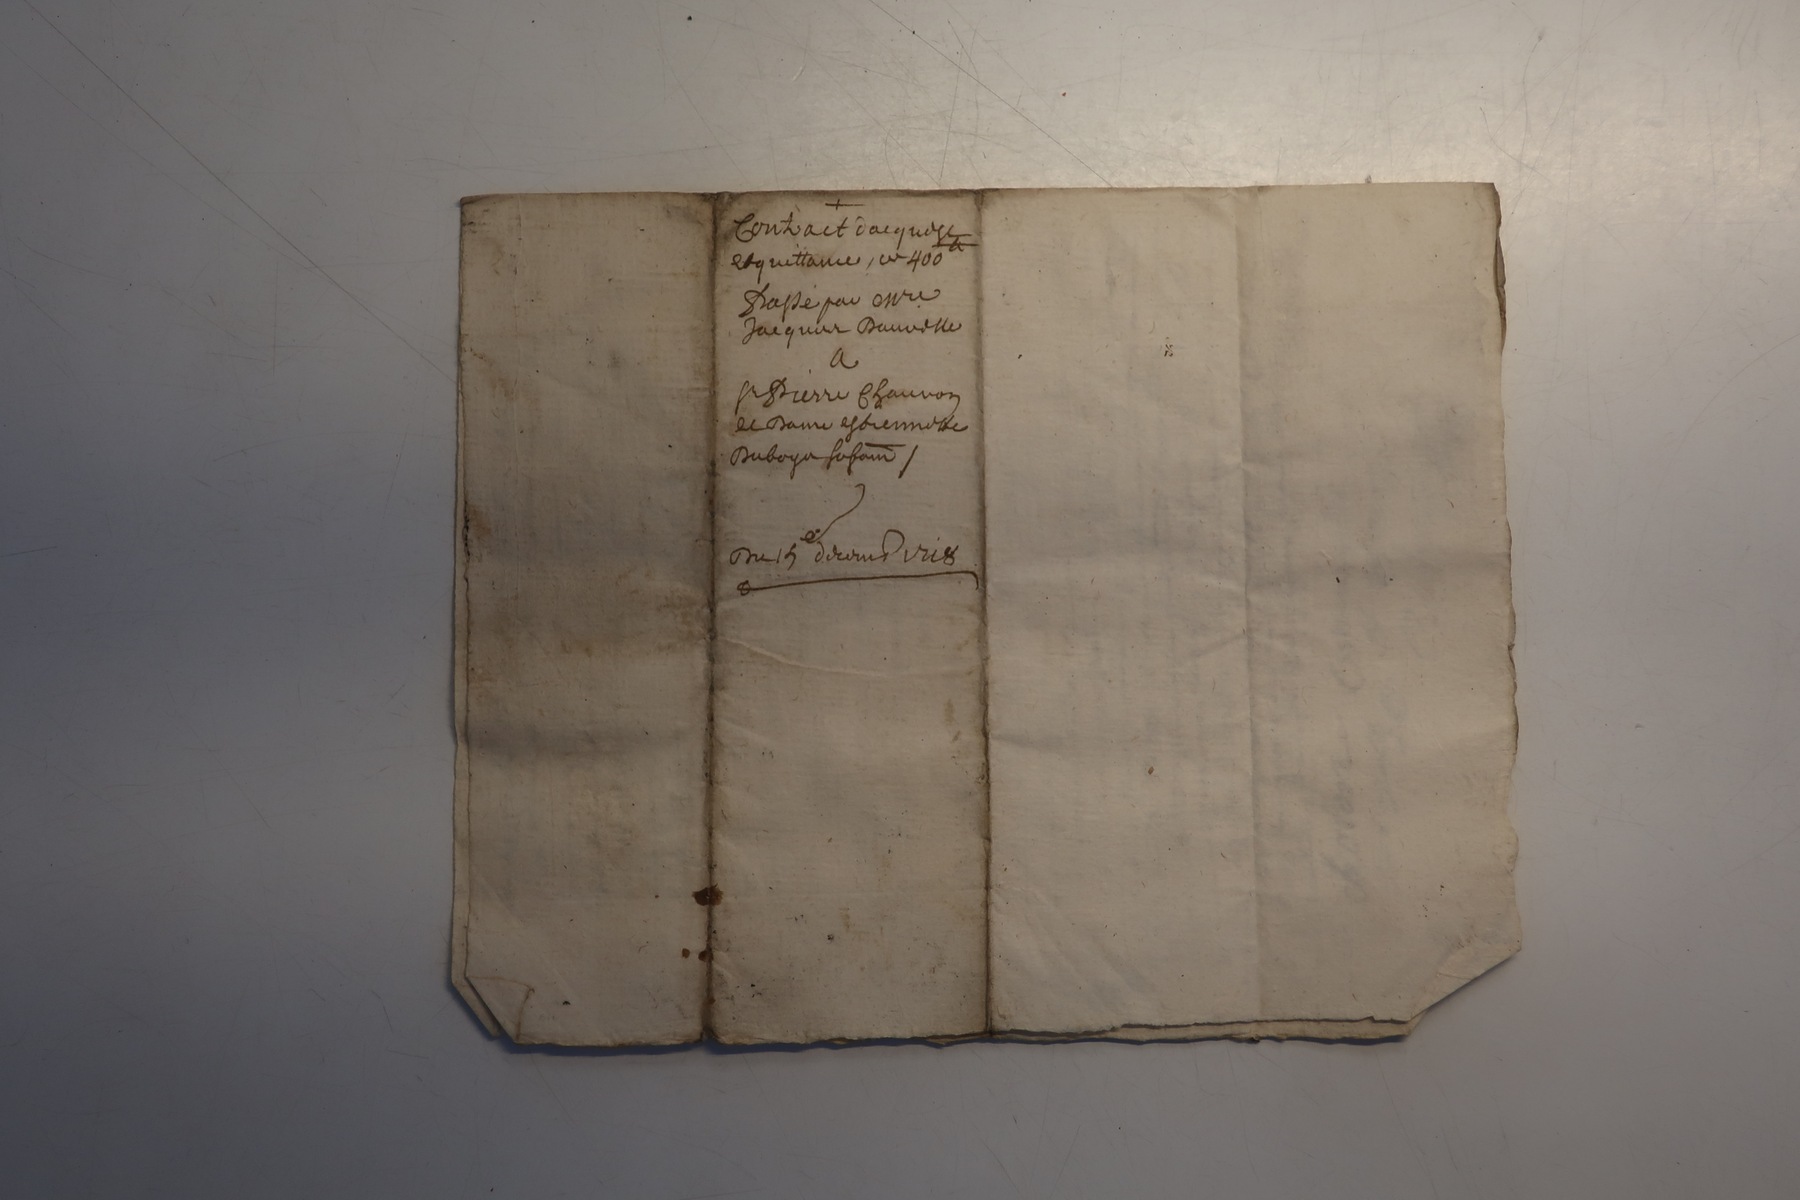 +
Contract dacquise
et quittance, de 400 ℔
Passé par Mre
Jacques Banville
A
Sr Pierre Chauvon
et Dame Estiennette
Duboys sa fam̄e /
Du 15e decemb 1718